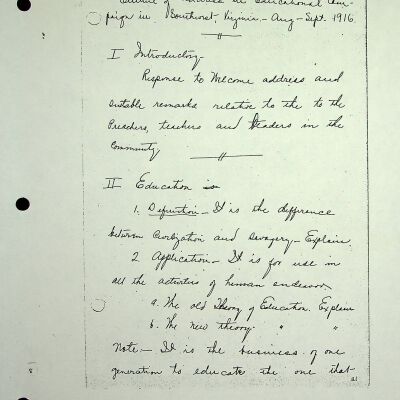 Outline of Address in Educational Cam-
paign in Southwest, Virginia - Aug - Sept. 1916.
I Introductory
Response to Welcome address and
suitable remarks relative to the to the
Preachers, teachers and leaders in the
Community.
II Education is
1. Definition - It is the difference
between Civilization and Savagery - Explain.
2. Application - It is for use in
all the activities of human endeavor.
a. The old Theory of Education. Explain
b. The new theory. " "
Note:- It is the business of one
generation to educate the one that